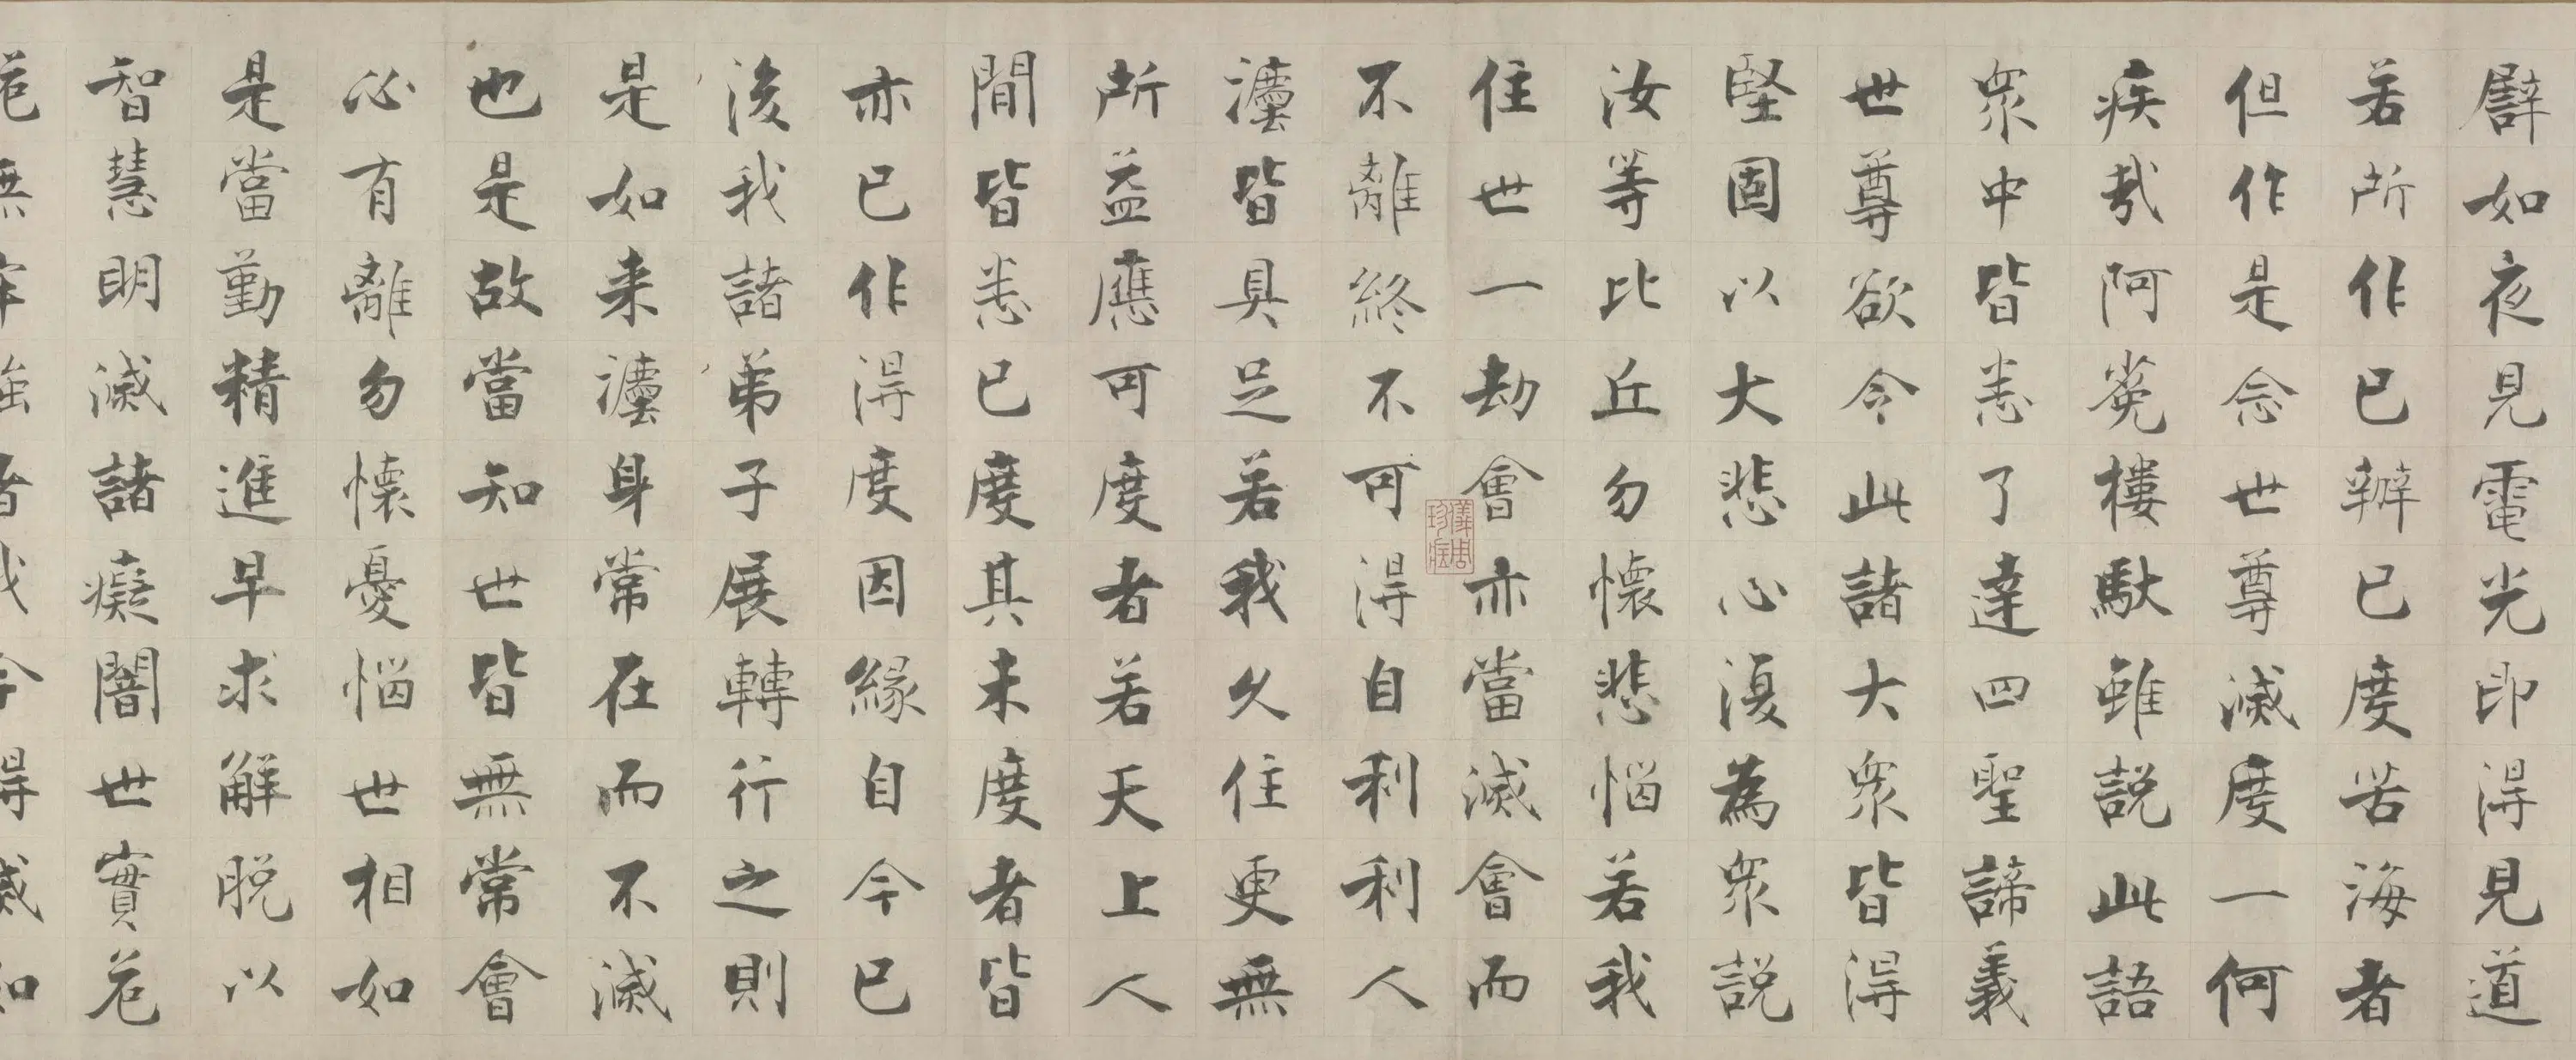 譬如夜見電光即得見道
若所作已辦已度苦海者
但作是念世尊滅度一何
疾哉阿㝹樓馱雖説此語
眾中皆悉了達四聖諦義
世尊欲令此諸大眾皆得
堅固以大悲心復為眾説
汝等比丘勿懷悲惱若我
住世一劫會亦當滅會而
不離終不可得自利利人
灋皆具足若我久住更無
所益應可度者若天上人
間皆悉已度其未度者皆
亦已作得度因緣自今已
後我諸弟子展轉行之則
是如来灋身常在而不滅
也是故當知世皆無常會
必有離勿懷憂惱世相如
是當勤精進早求解脱以
智慧明滅諸癡闇世實危
無牢強者我今得滅如
儀周珍藏